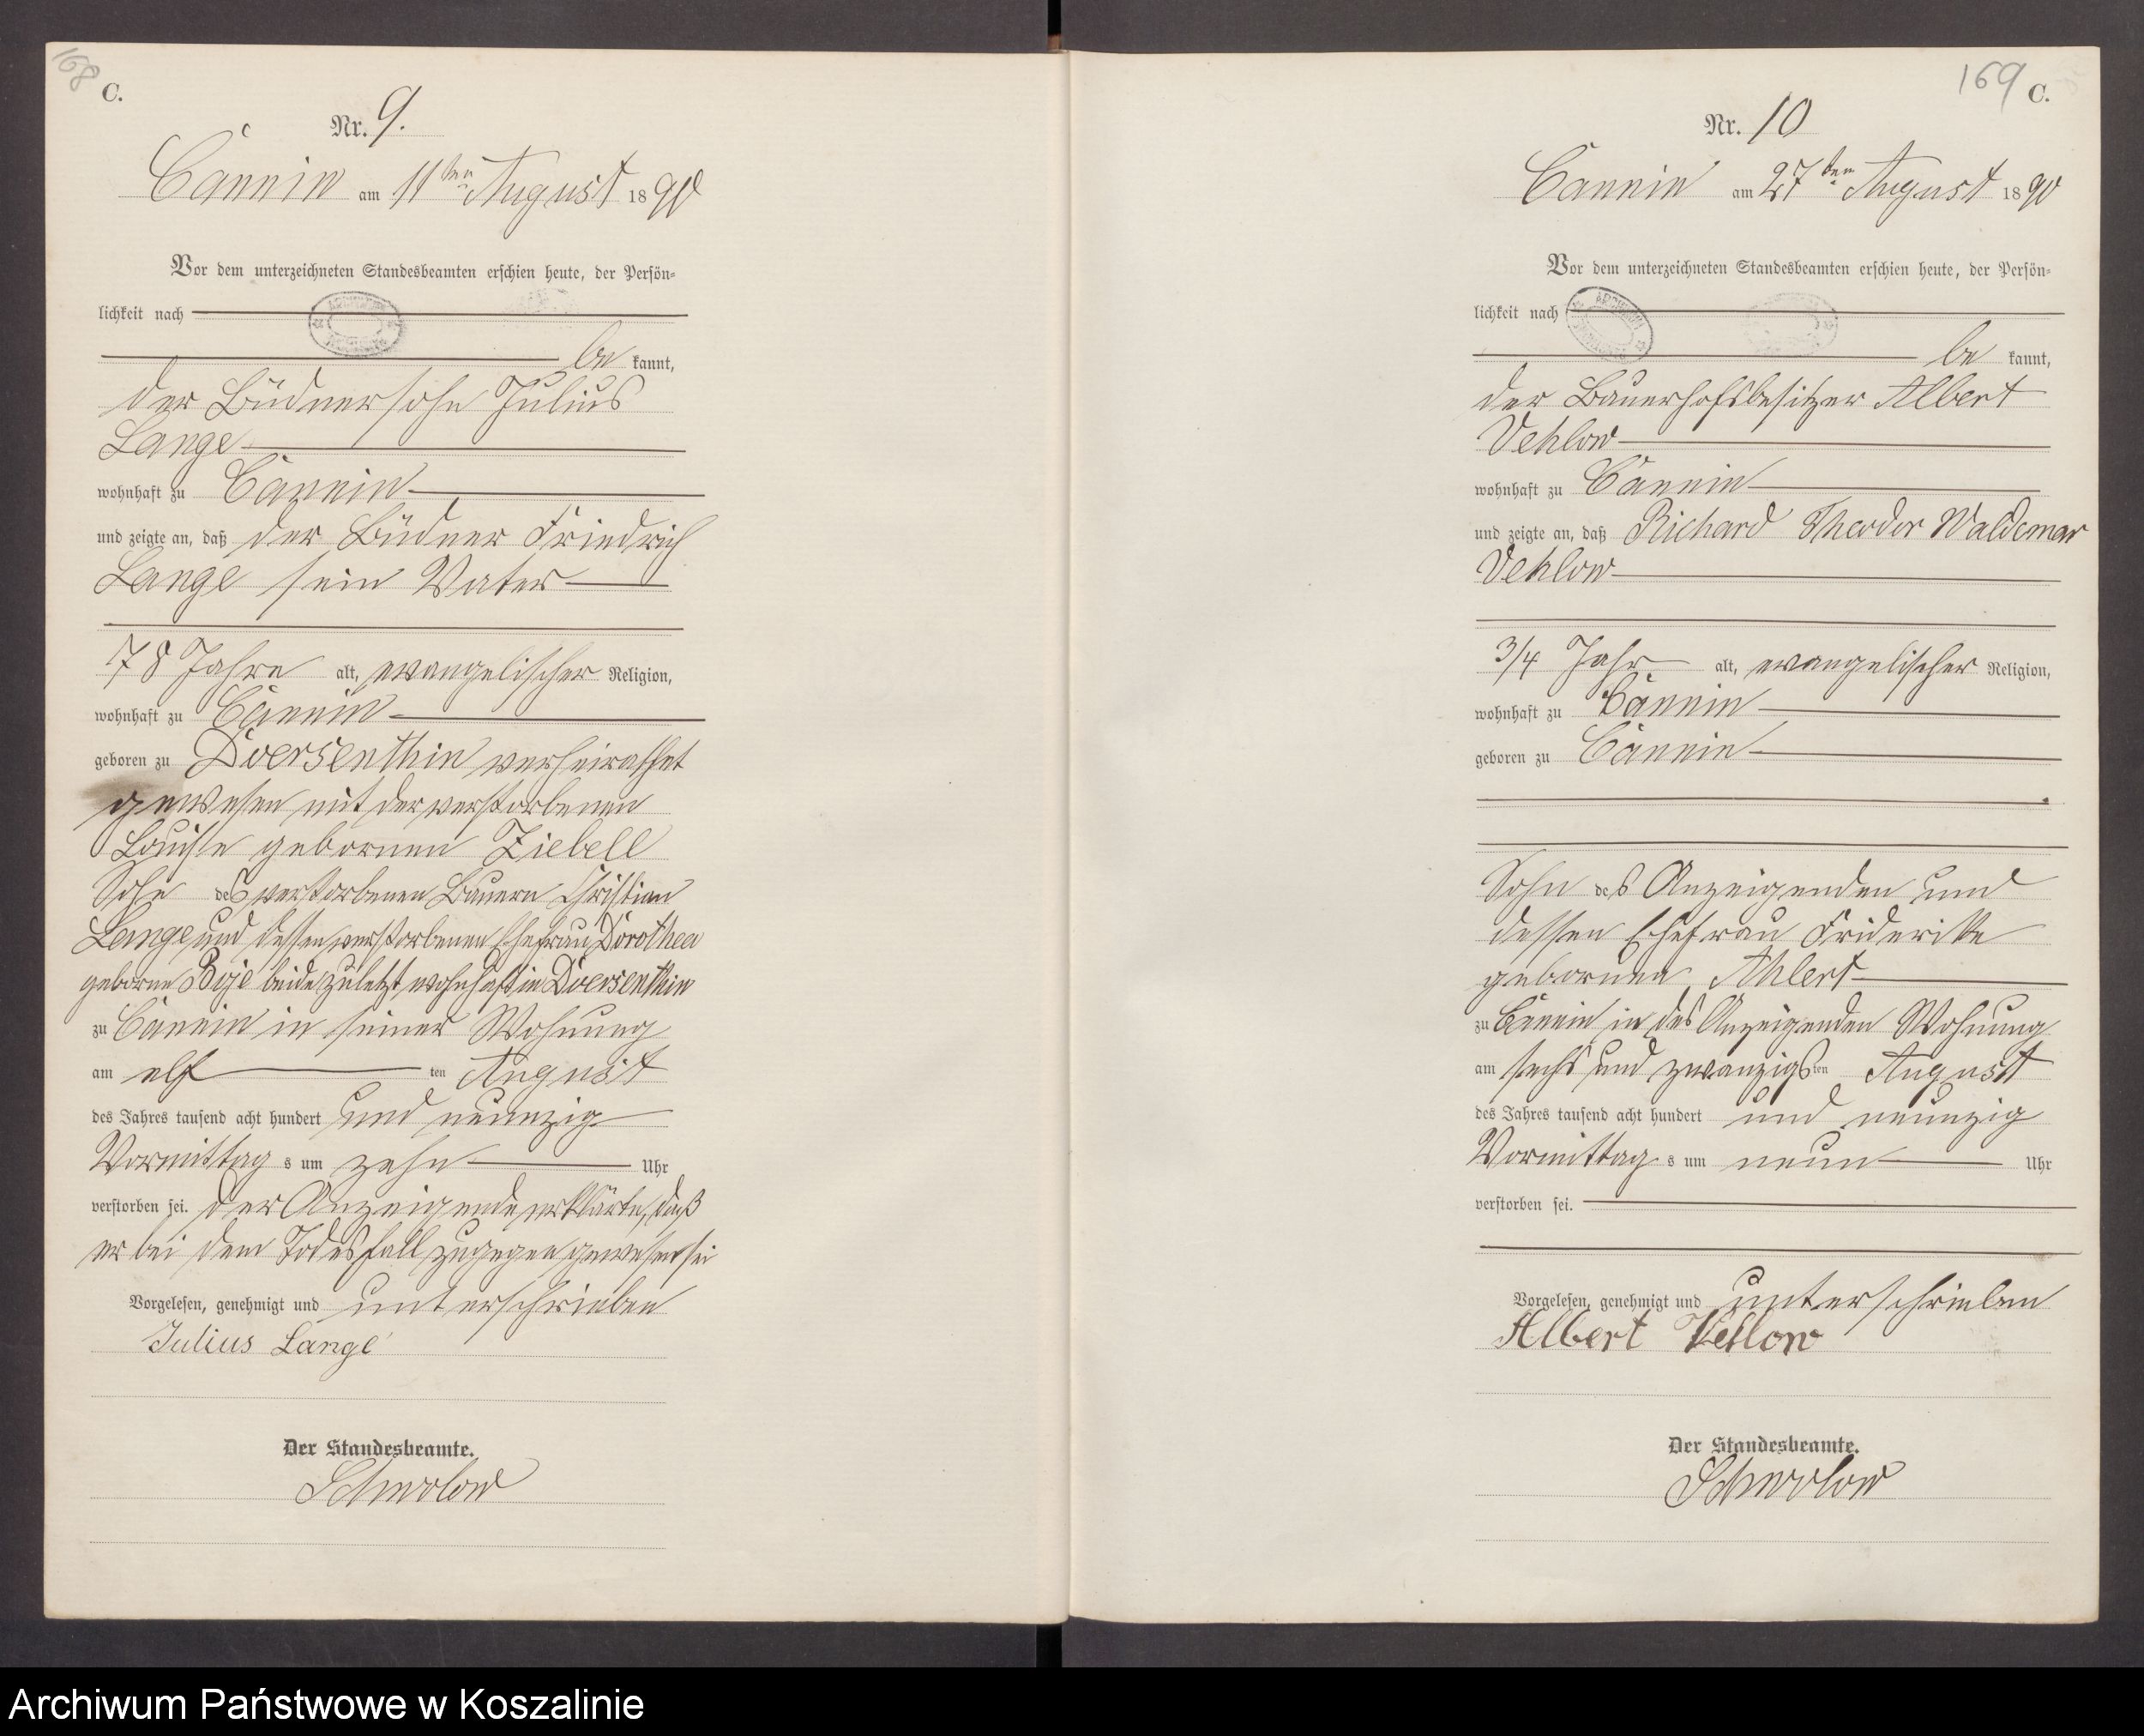 168
C.
Nr. 9.
Cannin am 11ten August 1890
Vor dem unterzeichneten Standesbeamten erschien heute, der Persön-
lichkeit nach
be kannt,
der Büdnersohn Julius
Lange
wohnhaft zu Cannin
und zeigte an, daß der Büdner Friedrich
Lange sein Vater
78 Jahre alt, evangelischer Religion,
wohnhaft zu Cannin
geboren zu Doersenthin verheirathet
gewesen mit der verstorbenen
Louise gebornen Ziebell
Sohn des verstorbenen Bauern Christian
Lange und dessen verstorbenen Ehefrau Dorothea
geborne Boje beide zuletzt wohnhaft in Doersenthin
zu Cannin in seiner Wohnung
am elf ten August
des Jahres tausend acht hundert und neunzig
Vormittag s um zehn Uhr
verstorben sei. der Anzeigende erklärte, daß
er bei dem Todesfall zugegen gewesen sei
Vorgelesen, genehmigt und unterschrieben
Julius Lange
Der Standesbeamte.
Schwolow
169 C.
Nr. 10
Cannin am 27ten August 1890
Vor dem unterzeichneten Standesbeamten erschien heute, der Persön-
lichkeit nach
be kannt,
der Bauerhofsbesitzer Albert
Vehlow
wohnhaft zu Cannin
und zeigte an, daß Richard Theodor Waldemar
Vehlow
3/4 Jahr alt, evangelischer Religion,
wohnhaft zu Cannin
geboren zu Cannin
Sohn des Anzeigenden und
dessen Ehefrau Friderikke
gebornen Ahlert
zu Cannin in des Anzeigenden Wohnung
am sechs und zwanzigsten August
des Jahres tausend acht hundert und neunzig
Vormittag s um neun Uhr
verstorben sei.
Vorgelesen, genehmigt und unterschrieben
Albert Vehlow
Der Standesbeamte.
Schwolow
Archiwum Państwowe w Koszalinie